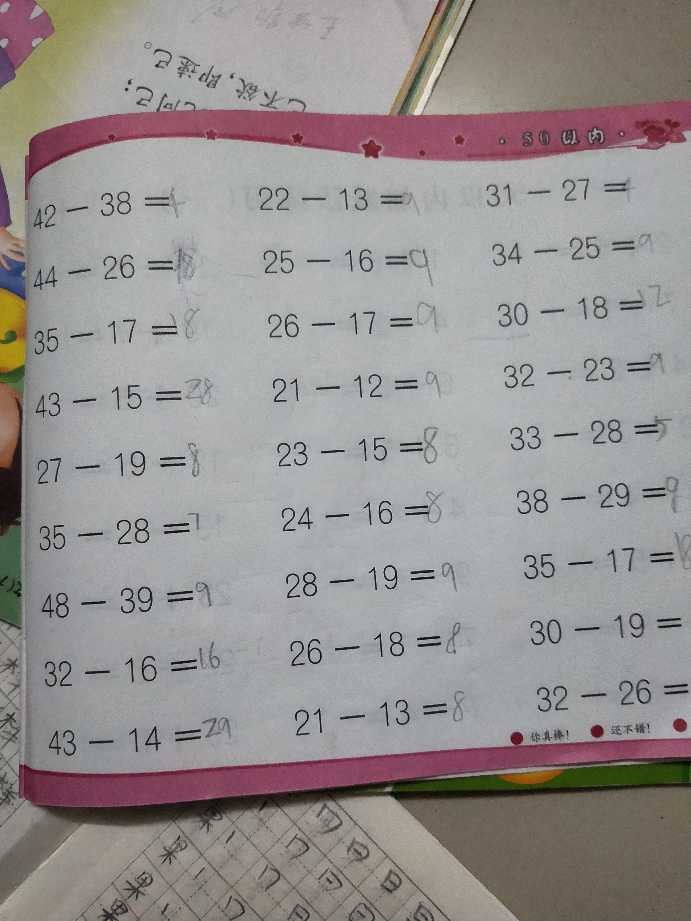 己不欲，即速已。
· 50以内 ·
42 − 38 =4 22 − 13 =9 31 − 27 =4
44 − 26 =18 25 − 16 =9 34 − 25 =9
35 − 17 =18 26 − 17 =9 30 − 18 =12
43 − 15 =28 21 − 12 =9 32 − 23 =9
27 − 19 =8 23 − 15 =8 33 − 28 =5
35 − 28 =7 24 − 16 =8 38 − 29 =9
48 − 39 =9 28 − 19 =9 35 − 17 =18
32 − 16 =16 26 − 18 =8 30 − 19 =
43 − 14 =29 21 − 13 =8 32 − 26 =
你真棒! 还不错!
果
果
果
果